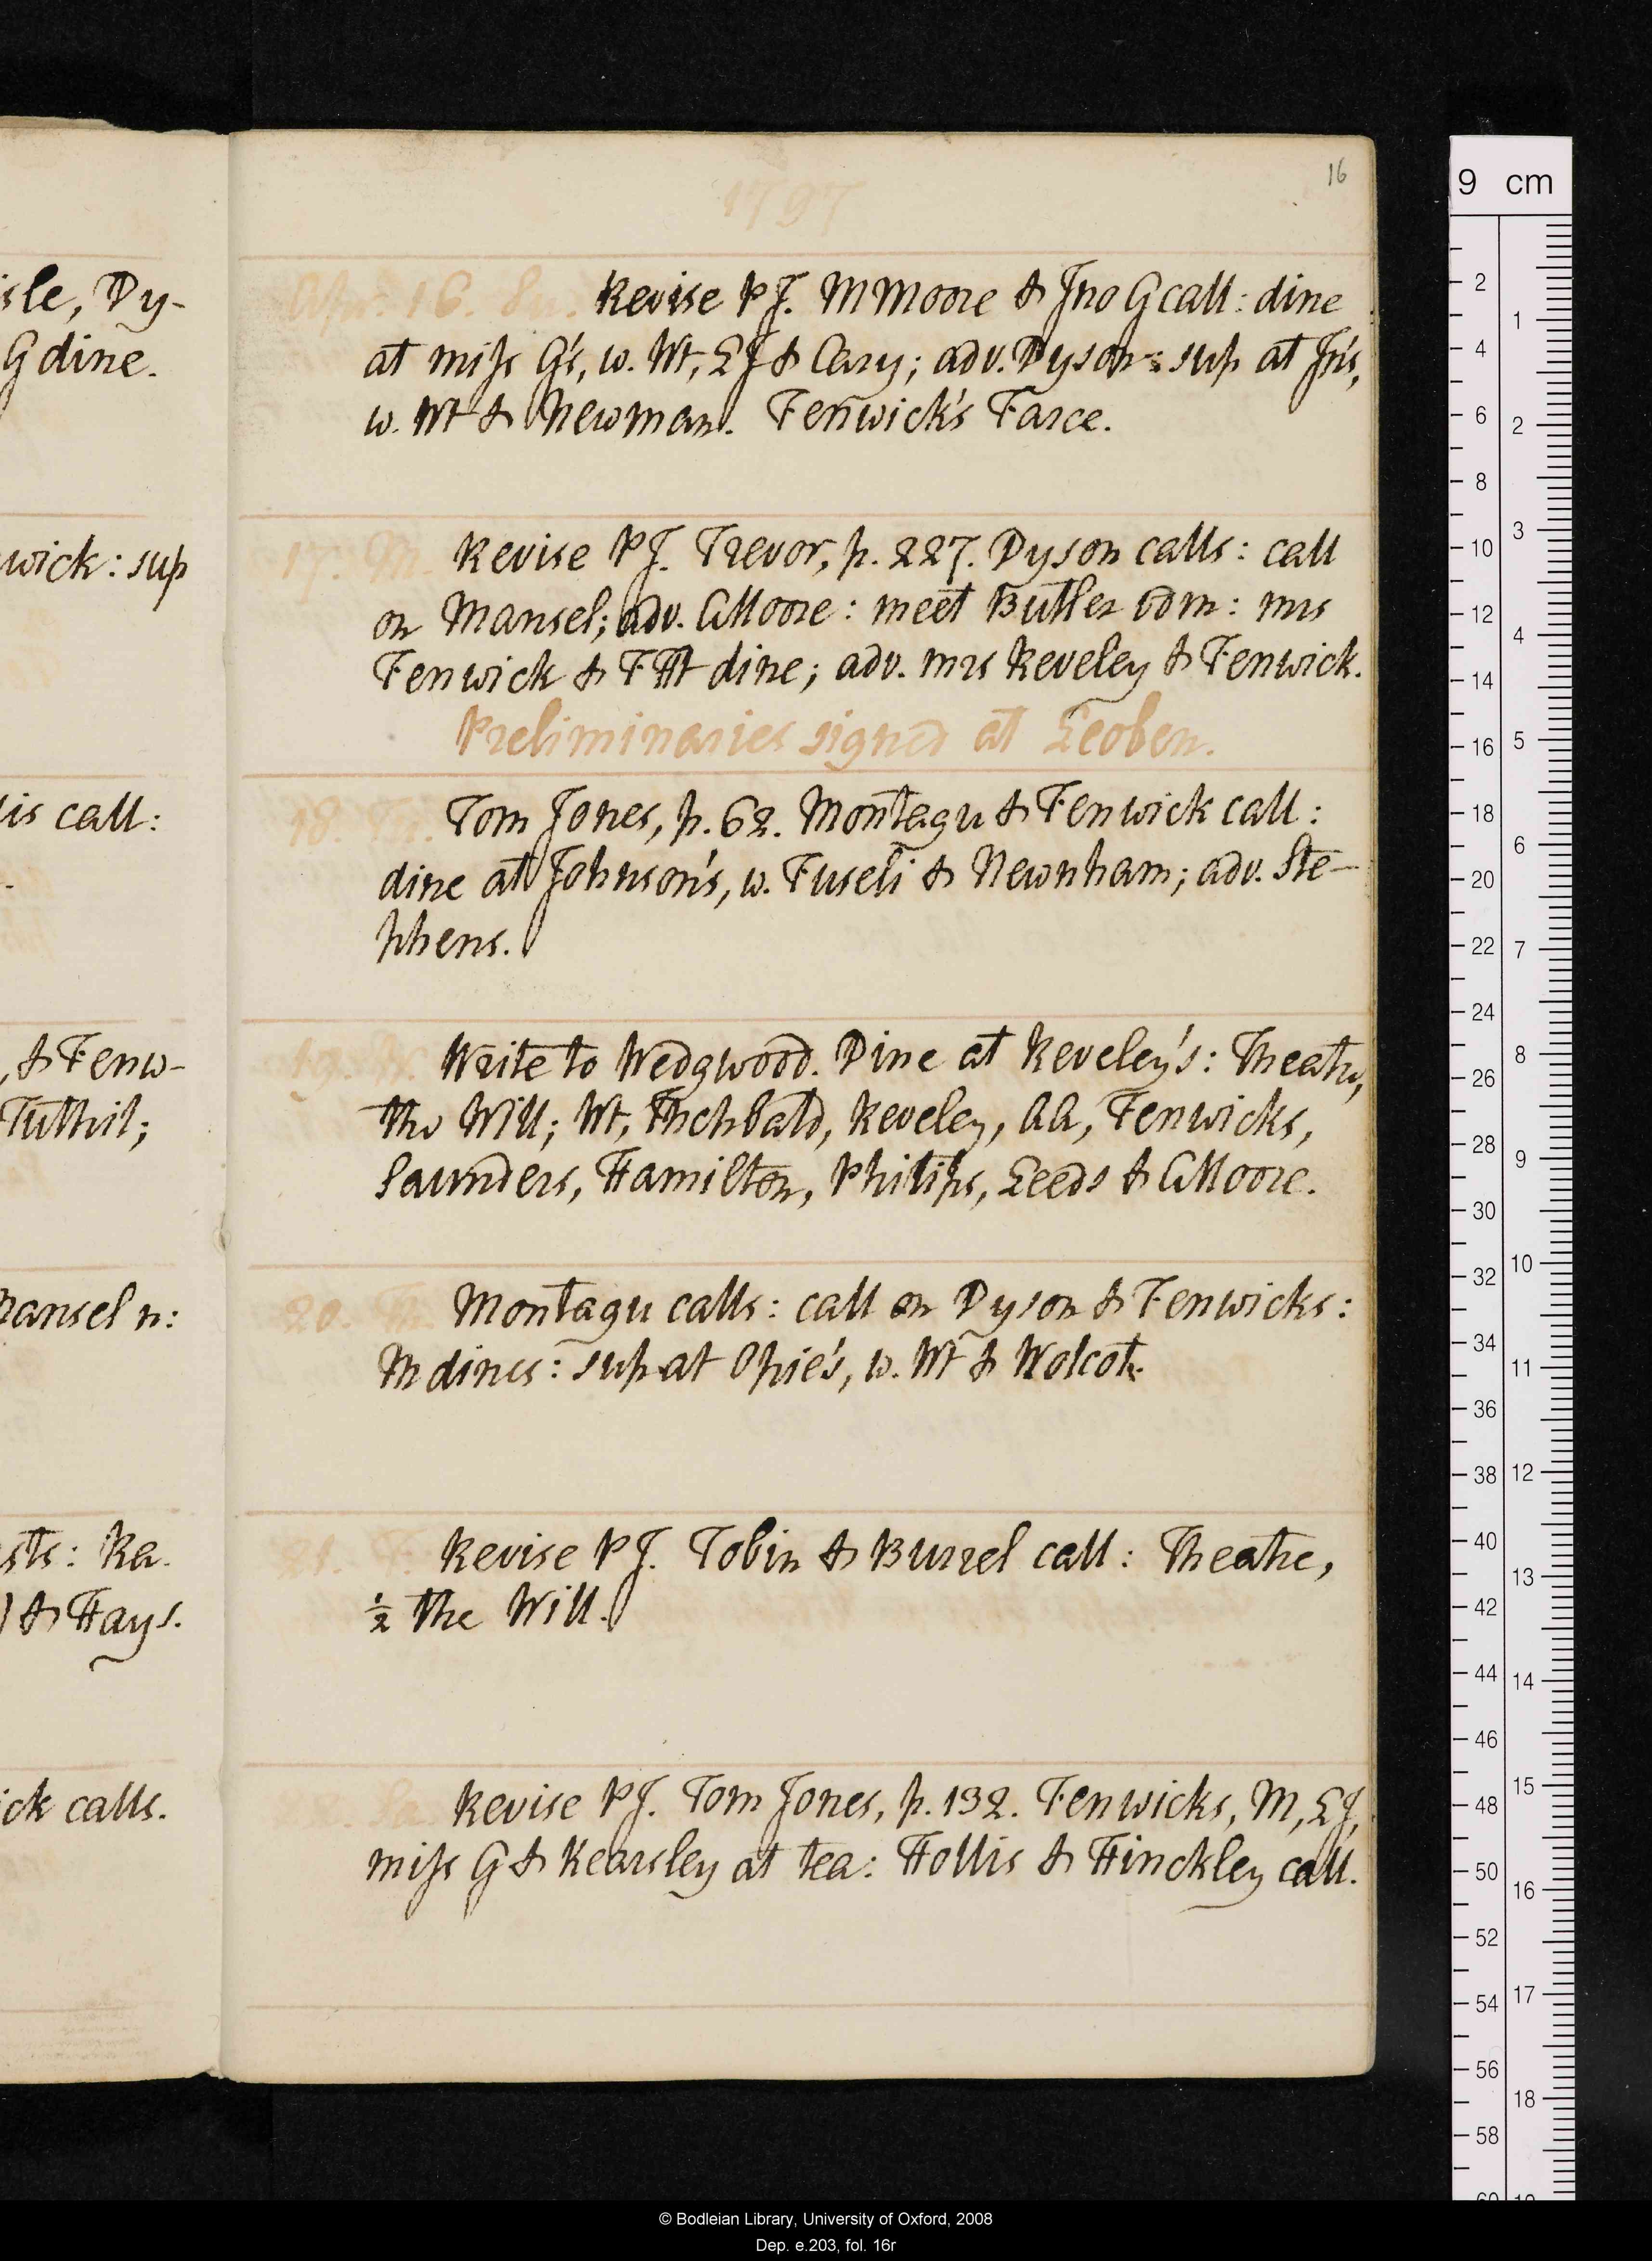 16
1797
isle, Dy-
G dine.
wick: sup
is call:
, & Fenw-
Tuthil;
ansel n:
sts: Ra.
) & Hays.
ick calls.
Apr. 16. Su. Revise PJ. M Moore & Jno G call: dine
at miss G's, w. Wt, LJ & Cary; adv. Dyson: sup at Jn's,
w. Wt & Newman. Fenwick's Farce.
17. M. Revise PJ. Trevor, p. 227. Dyson calls: call
on Mansel; adv. AMoore: meet Butler: mrs
Fenwick & dine; adv. mrs Reveley & Fenwick.
Preliminaries signed at Leoben.
18. Tu. Tom Jones, p. 62. Montagu & Fenwick call:
dine at Johnson's, w. Fuseli & Newnham; adv. Ste-
phens.
19. W. Write to Wedgwood. Dine at Reveley's: Theatre,
The Will; Wt, Inchbald, Reveley, AA, Fenwicks,
Saunders, Hamilton, Philips, Leeds & AMoore.
20. Th. Montagu calls: call on Dyson & Fenwicks:
M dines: sup at Opie's, w. Wt & Wolcot.
21. F. Revise PJ. Tobin & Burrel call: Theatre,
½ The Will.
Sa. Revise PJ. Tom Jones, p. 132. Fenwicks, M, LJ,
miss G & Kearsley at tea: Hollis & Hinckley call.
9 cm
2 4 6 8 10 12 14 16 18 20 22 24 26 28 30 32 34 36 38 40 42 44 46 48 50 52 54 56 58
1 2 3 4 5 6 7 8 9 10 11 12 13 14 15 16 17 18
© Bodleian Library, University of Oxford, 2008
Dep. e.203, fol. 16r